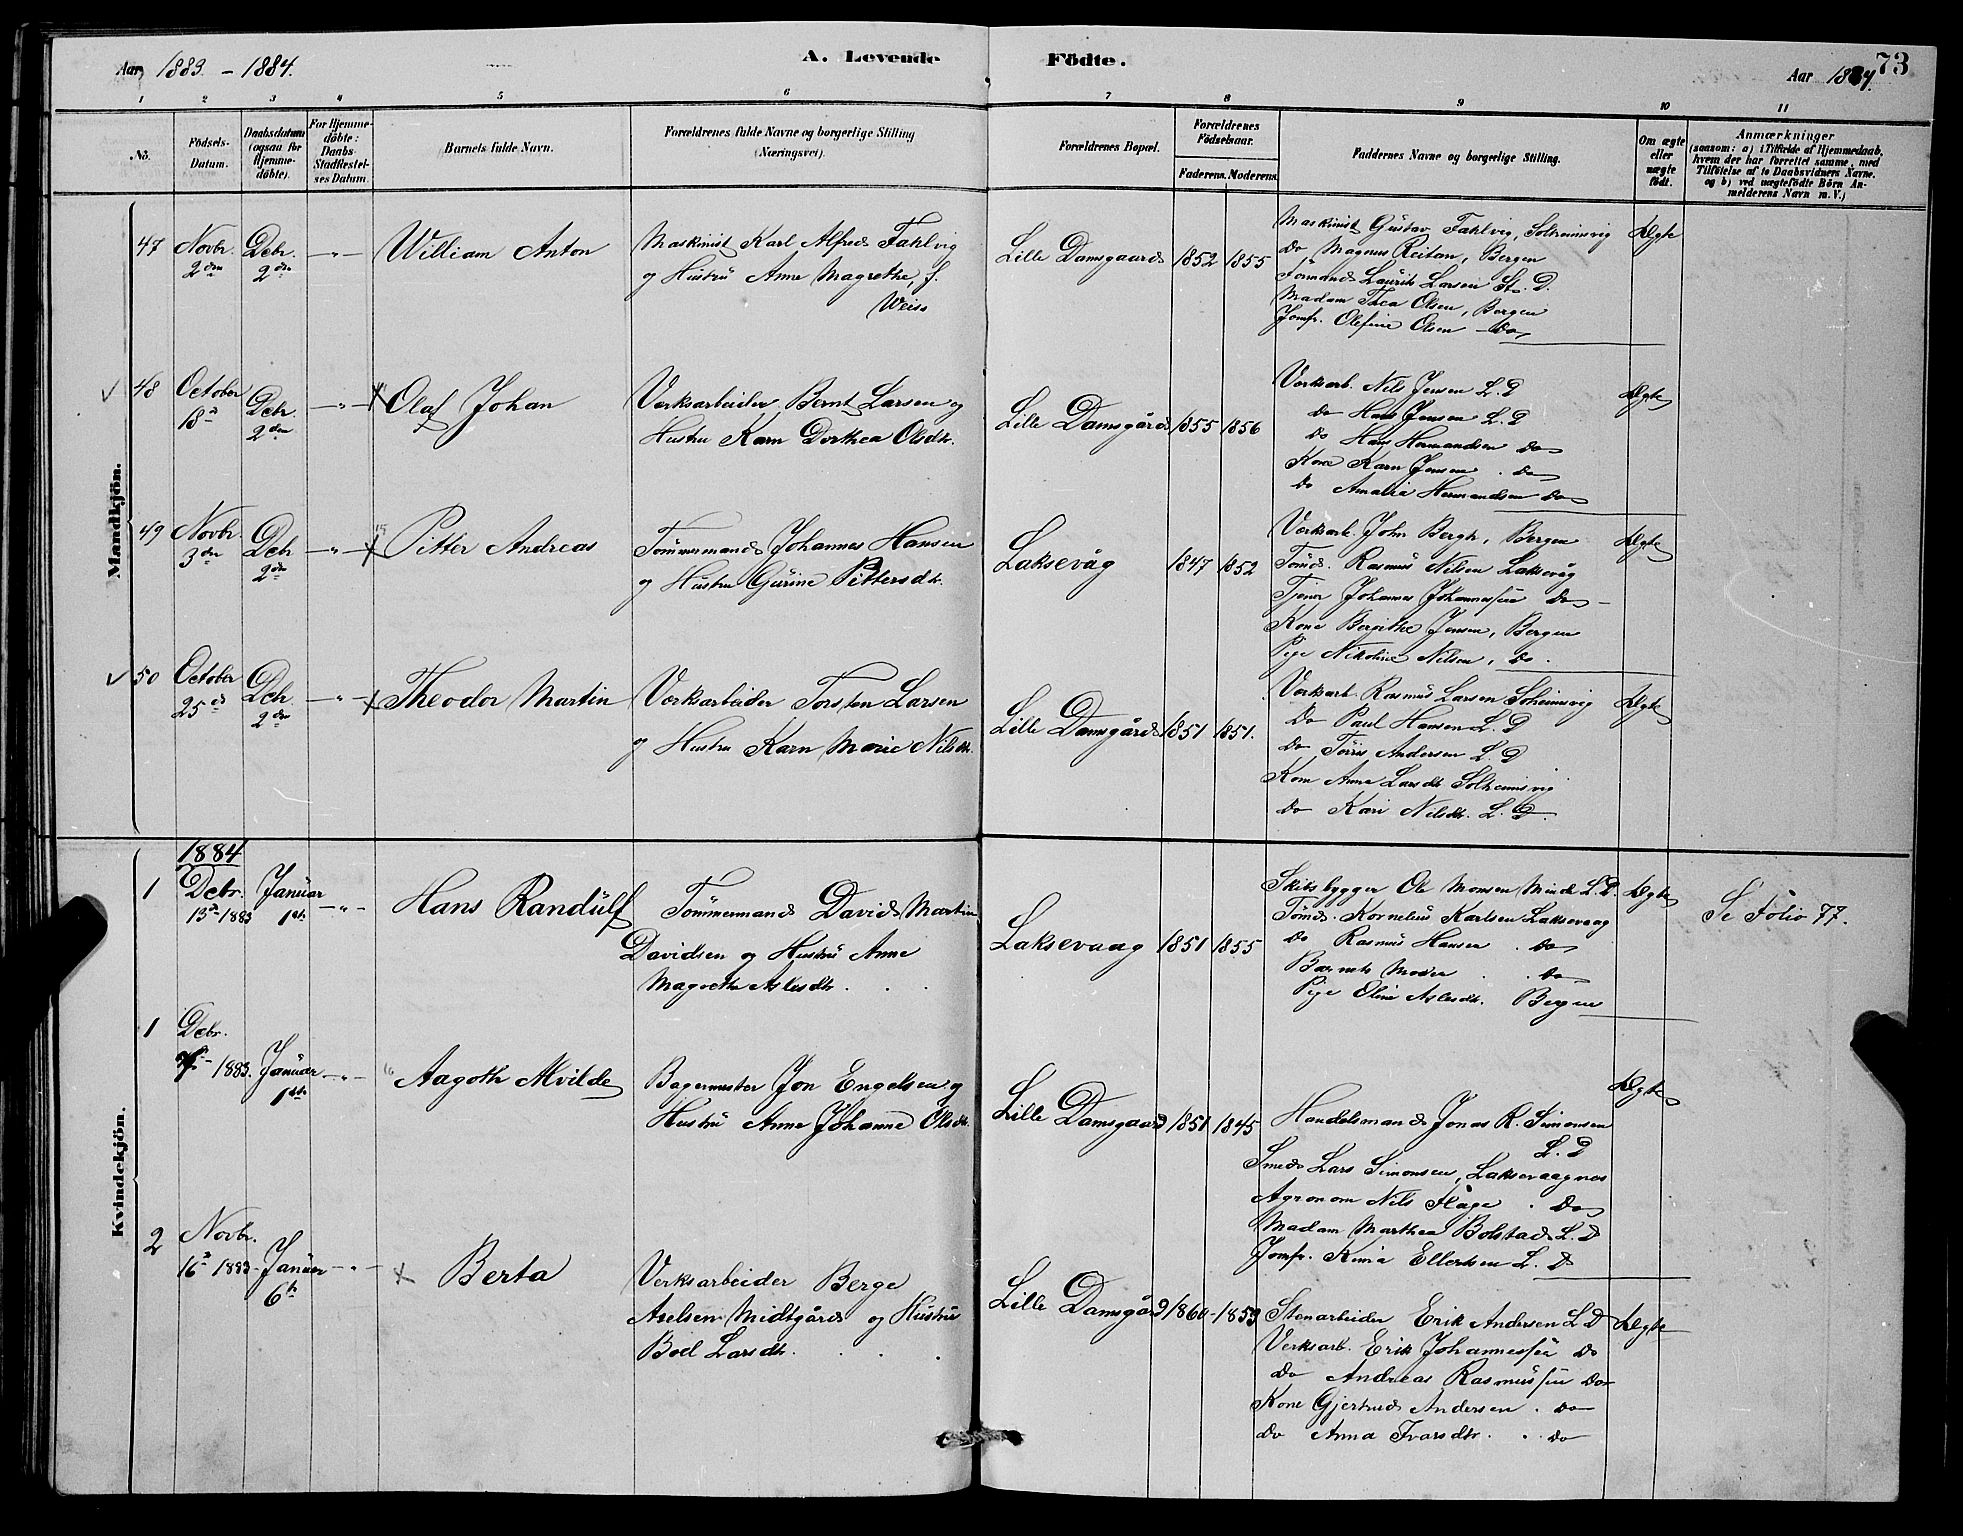 Aar 1883. - 1884.
A. Levende Födte.
Aar 1884.
73
1 2 3 4 5 6 7 8 9 10 11
No.
Födsels-Datum.
Daabsdatum (ogsaa for Hjemme-döbte).
For Hjemme-döbte: Daabs-Stadfæstel-ses Datum.
Barnets fulde Navn.
Forældrenes fulde Navne og borgerlige Stilling (Næringsvei).
Forældrenes Bopæl.
Forældrenes Födselsaar.
Faderens. Moderens.
Faddernes Navne og borgerlige Stilling.
Om ægte eller uægte födt.
Anmærkninger
(saasom: a) i Tilfælde af Hjemmedaab,
hvem der har forrettet samme, med
Tilföielse af to Daabsvidners Navne.
og b) ved uægtefödte Börn An-
melderens Navn m. V.)
Mandkjön.
47 Novbr. 2den Debr. 2den -"- William Anton
Maskinist Karl Alfred Fahlvig
og Hustru Anne Magrethe, f.
Weiss
Lille Damsgaard 1852 1855
Maskinist Gustav Fahlvig, Solheimsvig
do Magnus Reitan, Bergen
Formand Laurits Larsen St. D.
Madam Thea Olsen, Bergen
Jomfr. Olefine Olsen do
Ægte
48 October 18d Debr. 2den -"- Olaf Johan
Verksarbeider Bernt Larsen og
Hustru Karn Dorthea Olsdtr.
Lille Damsgård 1855 1856
Verksarb. Nils Jensen L. D
do Hans Jensen L. D
do Hans Hermandsen do
Kone Karn Jensen . do
do Amalia Hermandsen do
Ægte
49 Novbr. 3die Debr 2den -"- Pitter Andreas
Tömmermand Johannes Hansen
og Hustru Gurine Pittersdtr.
Laksevåg 1847 1852
Verksarb. John Bergh, Bergen
Tömd. Rasmus Nilsen Laksevåg
Tjener Johannes Johannessen do
Kone Bergithe Jensen, Bergen
Pige Nikoline Nilsen, do.
Ægte
50 October 25de Debr. 2den -"- Theodor Martin
Verksarbeider Torsten Larsen
og Hustru Karn Marie Nilsdtr.
Lille Damsgård 1851 1851.
Verksarb. Rasmus Larsen Solheimsvig
do Paul Hansen L. D
do Törris Andersen L. D
Kone Anna Larsdtr Solheimsvig
do Kari Nilsdtr. L. D.
Ægte
1884
1 Debr. 13d 1883 Januar 1ste -"- Hans Randulf
Tömmermand David Martin
Davidsen og Hustru Anne
Magrethe Aslesdtr. . .
Laksevaag 1851 1855
Skibsbygger Ole Monsen Minde L. D.
Tömd. Kornelius Karlsen Laksevaag
do Rasmus Hansen . do
Barnets Moder . . do
Pige Oline Aslesdtr. Bergen
Ægte
Se Folio 77.
Kvindekjön.
1 Debr. 1883. Januar 1ste -"- 16 Aagoth Alvilde
Bagermester Jon Engelsen og
Hustru Anne Johanne Olsdtr.
Lille Damsgaard 1851 1845
Handelsmand Jonas R. Simonsen
L. D
Smed Lars Simonsen, Laksevaagnes
Agronom Nils Flage . do
Madam Marthea Bolstad L. D
Jomfr. Ellertsen L. D
Ægte
2 Novbr. 16d 1883 Januar 6te -"- Berta
Verksarbeider Berge
Axelsen Midtgård og Hustru
Boel Larsdtr. . . .
Lille Damsgård 1860 - 1859
Stenarbeider Erik Andersen L D
Verksarb. Erik Johannessen do
do Andreas Rasmussen do
Kone Gjertrud Andersen . do
do Anna Ivarsdtr. . . do
Ægte